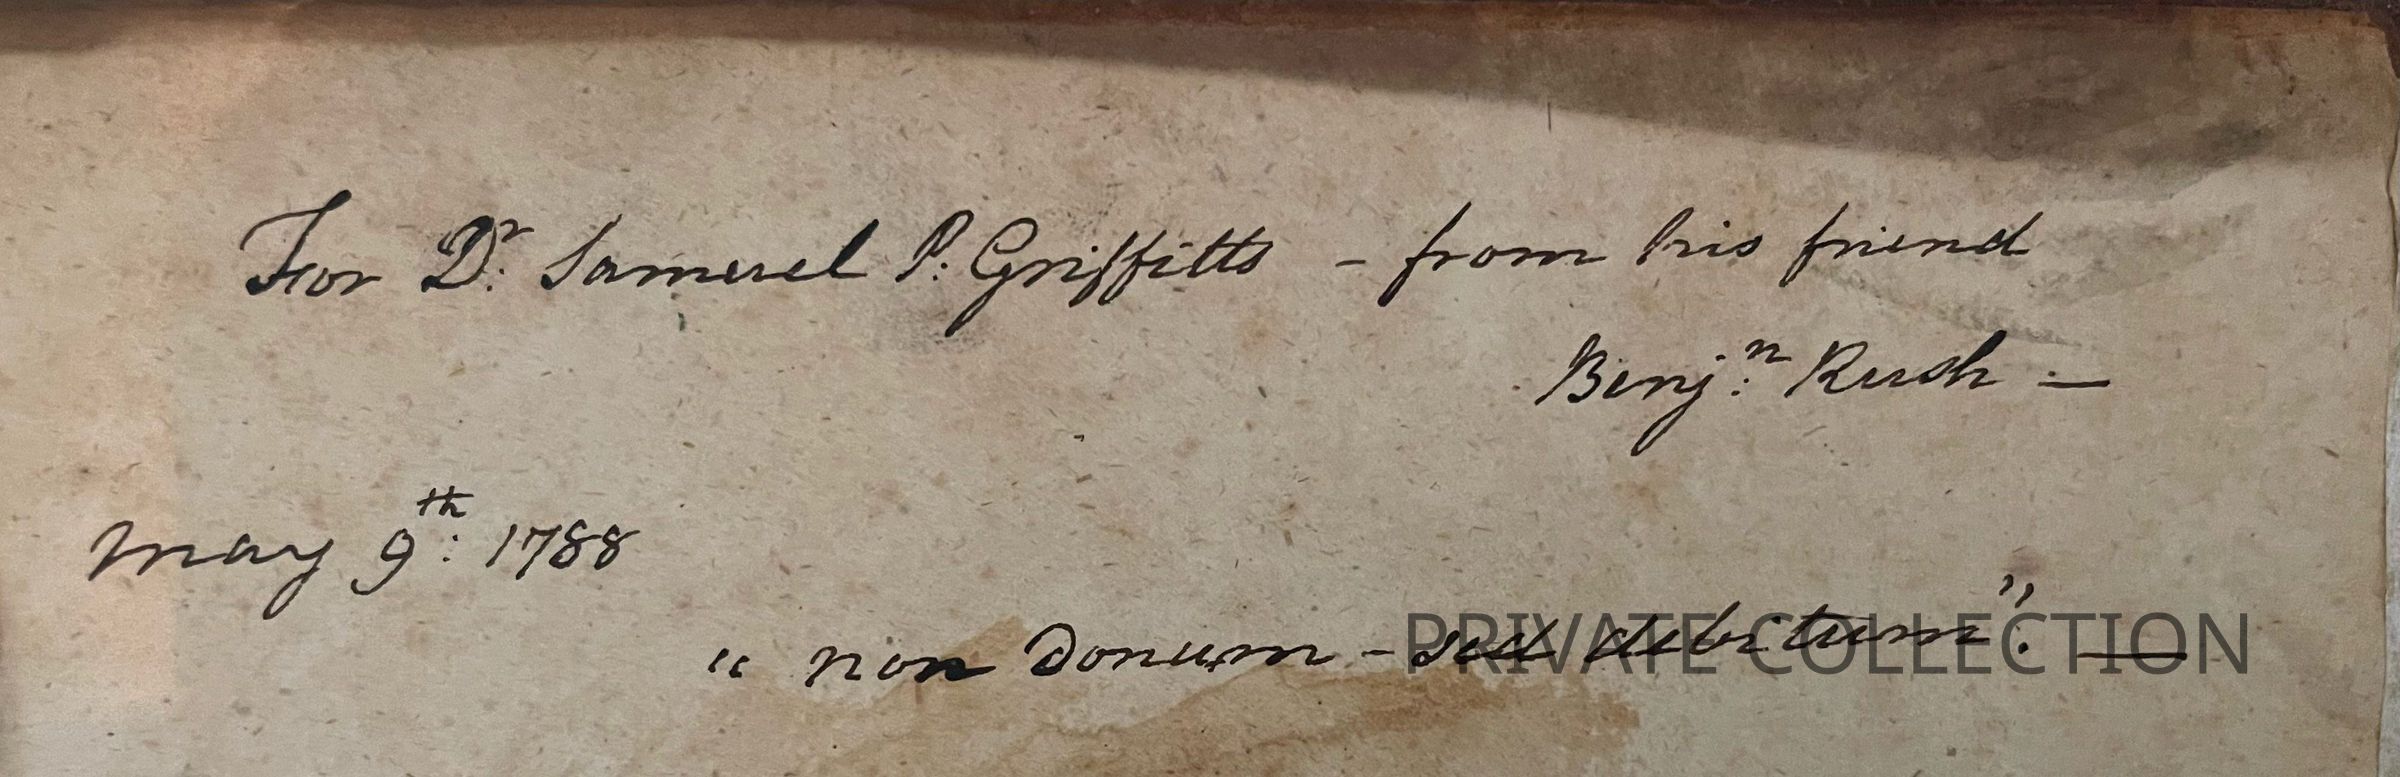 For Dr. Samuel P: Griffitts - from his friend
Benj:n Rush —
May 9th: 1788
"non Donum - sed debitum". —
PRIVATE COLLECTION